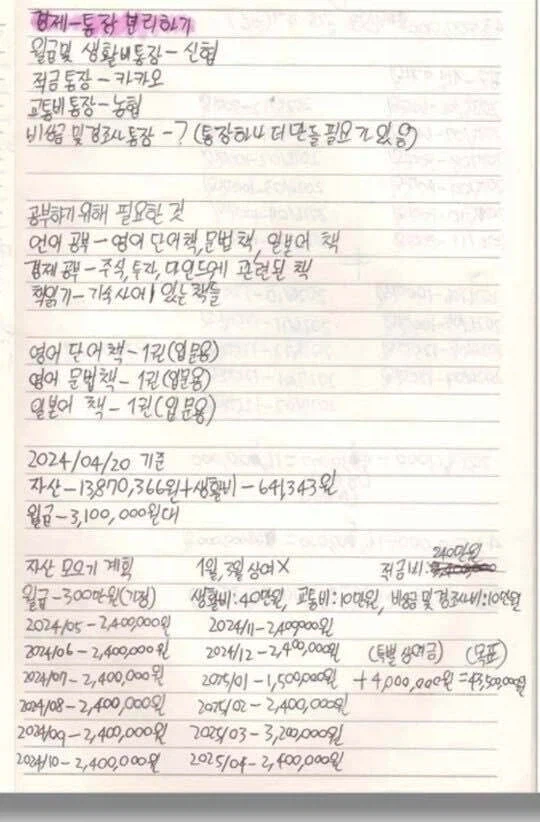 경제-통장 분리하기
월급및 생활비통장-신협
적금통장-카카오
교통비통장-농협
비상금 및 경조사통장-? (통장하나 더 만들 필요가 있음)
공부하기 위해 필요한 것
언어 공부-영어 단어책, 문법책, 일본어 책
경제 공부-주식, 투자, 마인드에 관련된 책
책읽기-기숙사에 있는 책들
영어 단어 책-1권(입문용)
영어 문법책-1권(입문용)
일본어 책-1권(입문용)
2024/04/20 기준
자산-13,870,366원+생활비-641,343원
월급-3,100,000원대
자산 모으기 계획 1월, 3월 상여X 적금비: 240만원
월급-300만원(가정) 생활비:40만원, 교통비:10만원, 비상금 및 경조사비:10만원
2024/05-2,400,000원 2024/11-2,400,000원
2024/06-2,400,000원 2024/12-2,400,000원 (특별 상여금) (목표)
2024/07-2,400,000원 2025/01-1,500,000원 +4,000,000원=43,500,000원
2024/08-2,400,000원 2025/02-2,400,000원
2024/09-2,400,000원 2025/03-3,200,000원
2024/10-2,400,000원 2025/04-2,400,000원